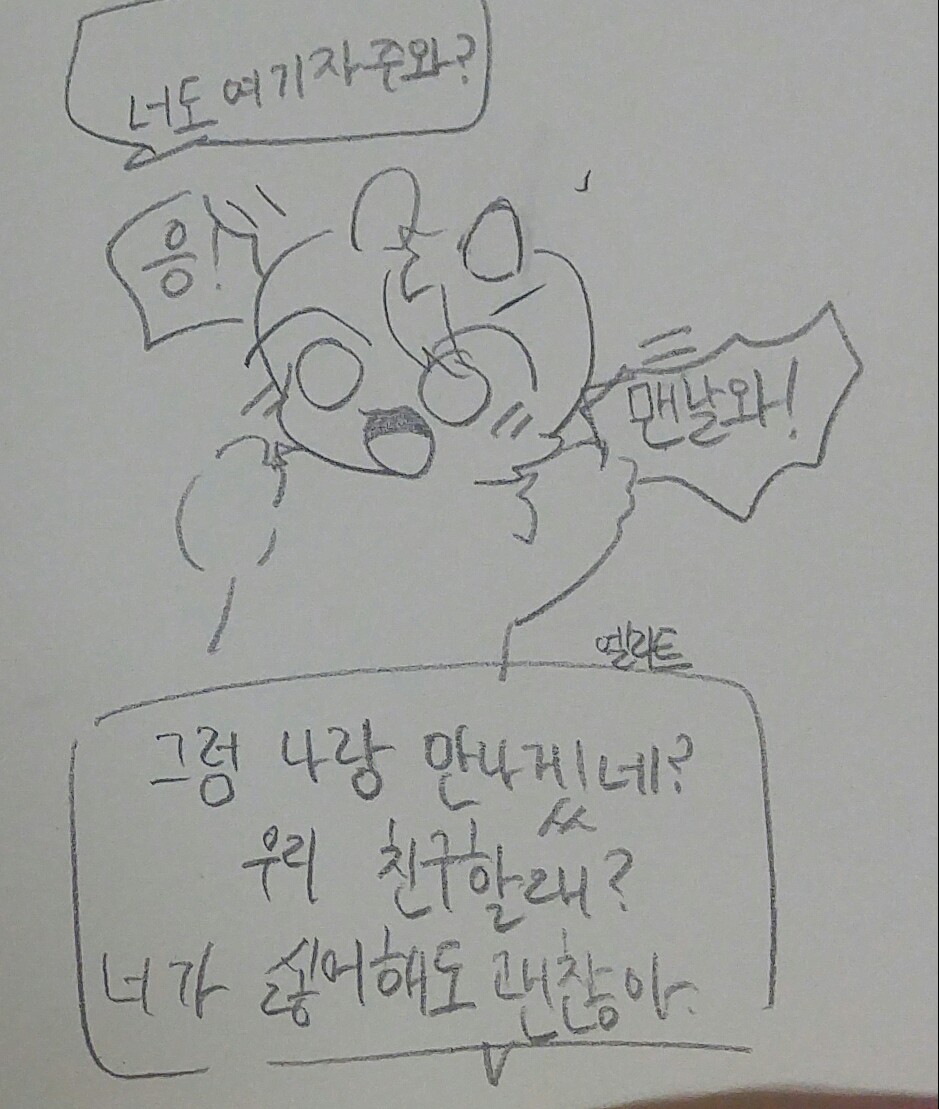 너도 여기 자주와?
응!
맨날와!
엘리트
그럼 나랑 만나겠네?
우리 친구할래?
너가 싫어해도 괜찮아.